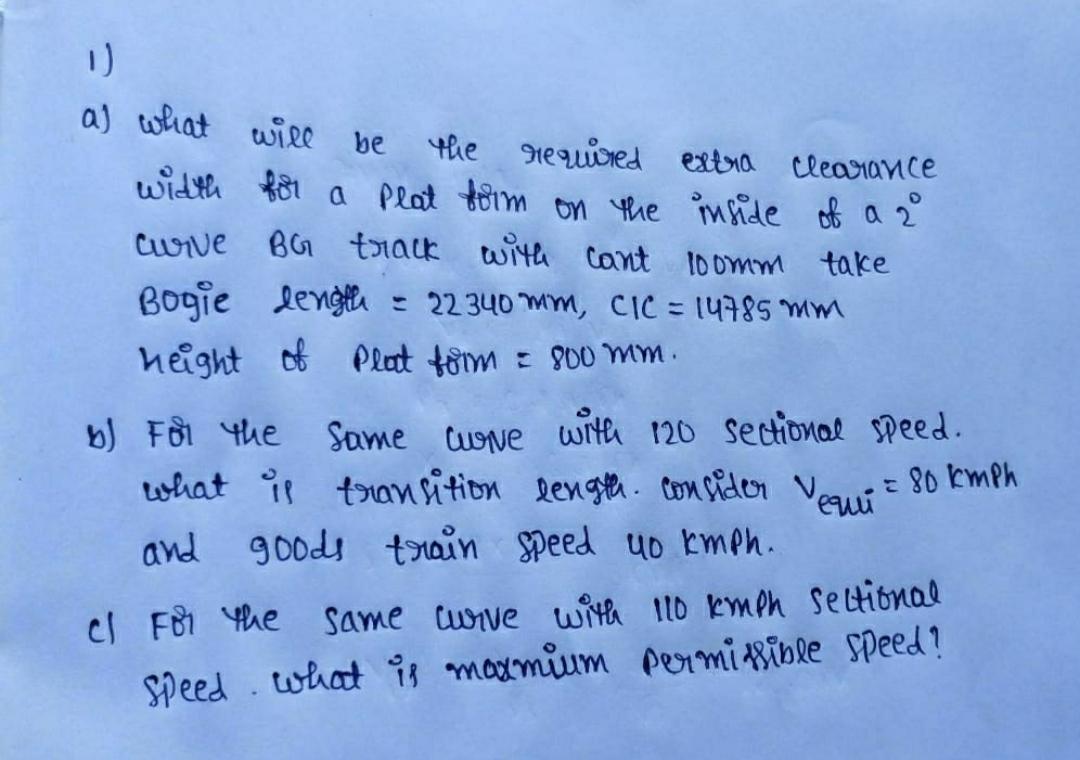 1)
a) what will be the required extra clearance
width for a Plat form on the inside of a 2°
curve BG track with cant 100mm take
Bogie length = 22340 mm, C/C = 14785 mm
height of Plat form = 800 mm.
b) For the same curve with 120 sectional speed.
what is transition length. consider Vequi = 80 kmph
and goods train speed 40 kmph.
c) For the same curve with 110 kmph sectional
speed. what is maxmium permissible speed?